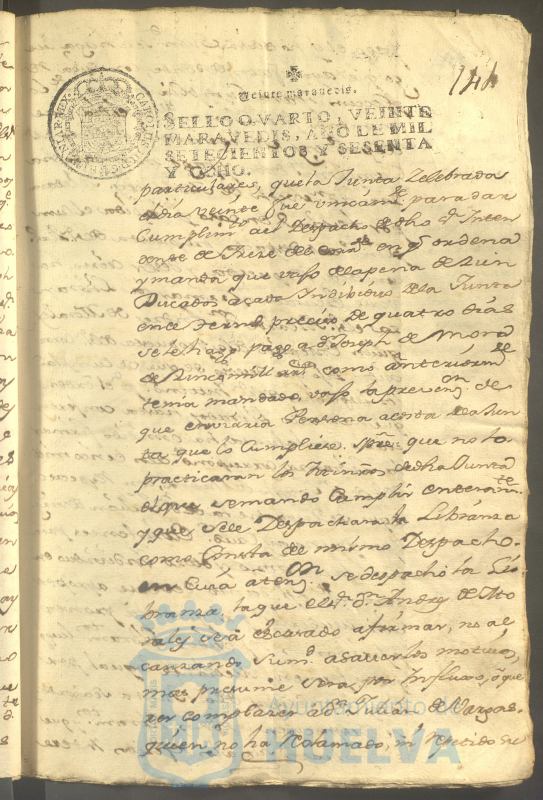 141
Veinte maravedis.
SELLO QVARTO, VEINTE
MARAVEDIS, AÑO DE MIL
SETECIENTOS Y SESENTA
Y OCHO.
particulares, que la Junta Zelebrada
el dia veinte fue unicam.te para dar
Cumplim.to al Despacho de dho S.r Inten
dente de treze de en q.e ordena
y manda que vajo de la pena de
Ducados a cada Yndibiduo de la Junta
en el termino preciso de quatro dias
se le haga pago a D.n Joseph de Mora
de mill como anteriorm.te
tenia mandado, vajo la preven.on de
que enviaria Persona a costa de la Jun
ta que lo Cumpliese, que no lo
practicaran los de dha Junta
el que se mando Cumplir enteram.te
y que se le Despachara la Libranza
como Consta del mismo Despacho.
en Cuia aten.on se despachó la Li
branza, la que el S.r D.n Andres de Mo
rales se ha escusado a firmar, no al
canzando sum.d a saver los motivos,
mas presume sera por influxo, ò que
rer complazer a D.n Julian de Vargas
quien no ha Reclamado, ni pedido
Ayuntamiento de
HUELVA